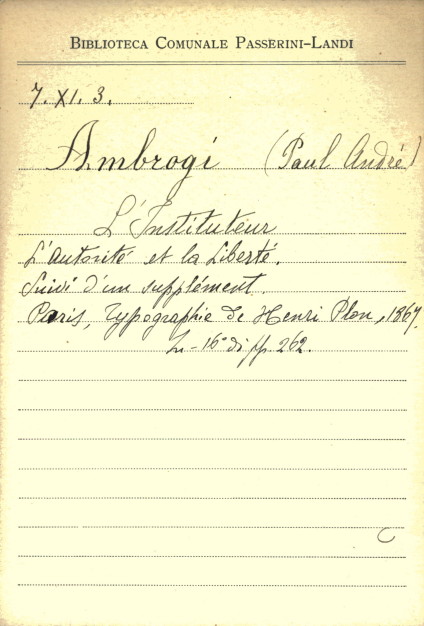 BIBLIOTECA COMUNALE PASSERINI-LANDI
7. XI. 3.
Ambrogi (Paul André)
L'Instituteur
L'Autorité et la Liberté.
Suivi d'un supplément.
Paris, Typographie de Henri Plon, 1867.
In-16° di pp. 262.
C